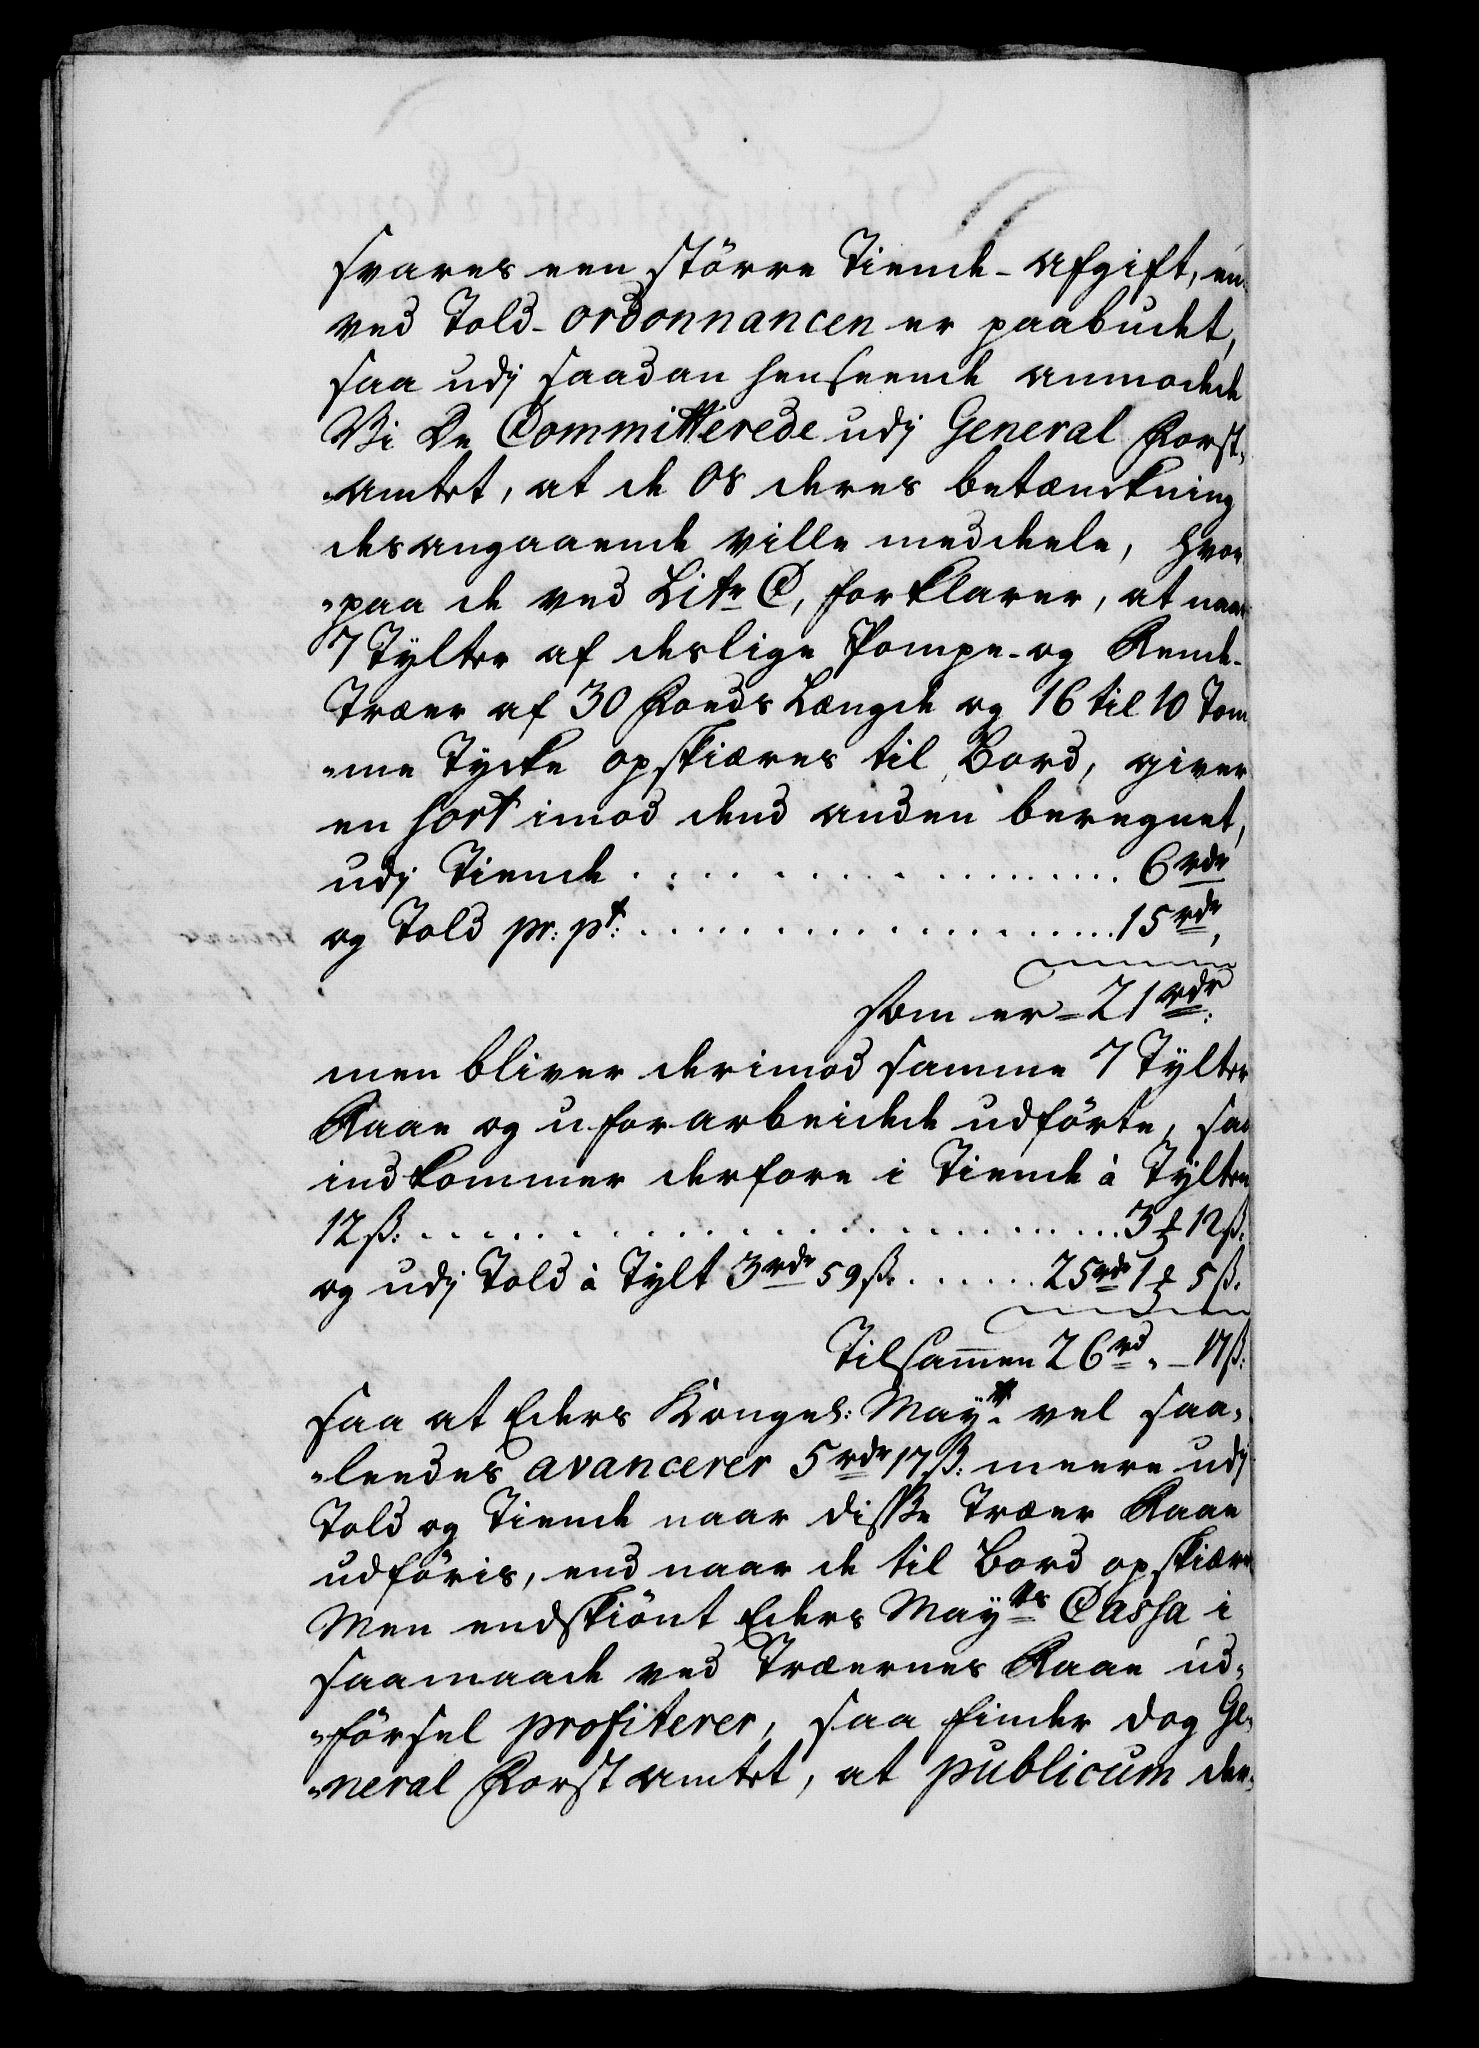 svares een större Tiende-Afgift, en
ved Told-Ordonnancen er paabudet,
saa udj saadan henseende anmodede
Vi De Committerede udj General Forst-
Amtet, at de Os deres betænckning
desangaaende ville meddeele, hvor
paa de ved Litr C, forklarer, at naar
7 Tylter af deslige Pompe- og Rende-
Træer af 30 Foeds Længde og 16 til 10 Tom
me Tycke opskiæres til Bord, giver
en sort imod dend anden beregnet,
udj Tiende . . . . . . . . . . 6 rdr
og Told pr: pt: . . . . . . . . . . 15 rdr,
som er = 21 rdr:
men bliver derimod samme 7 Tylter
Raae og uforarbeidede udförte, saa
indkommer derfore i Tiende à Tylten
12 ß: . . . . . . . . . . 3 ℔ 12 ß:
og udj Told à Tylt 3 rdr 59 ß. . . . . . 25 rdr 1 ℔ 5 ß.
Tilsam̄en 26 rd. - 17 ß:
saa at Eders Kongel: Mayt. vel saa-
leedes avancerer 5 rdr 17 ß: meere udj
Told og Tiende naar disse Træer Raae
udföris, end naar de til Bord opskiæres
Men endskiönt Eders Mayts Cassa i
saamaade ved Træernes Raae ud-
försel profiterer, saa finder dog Ge-
neral Forst Amtet, at publicum der-